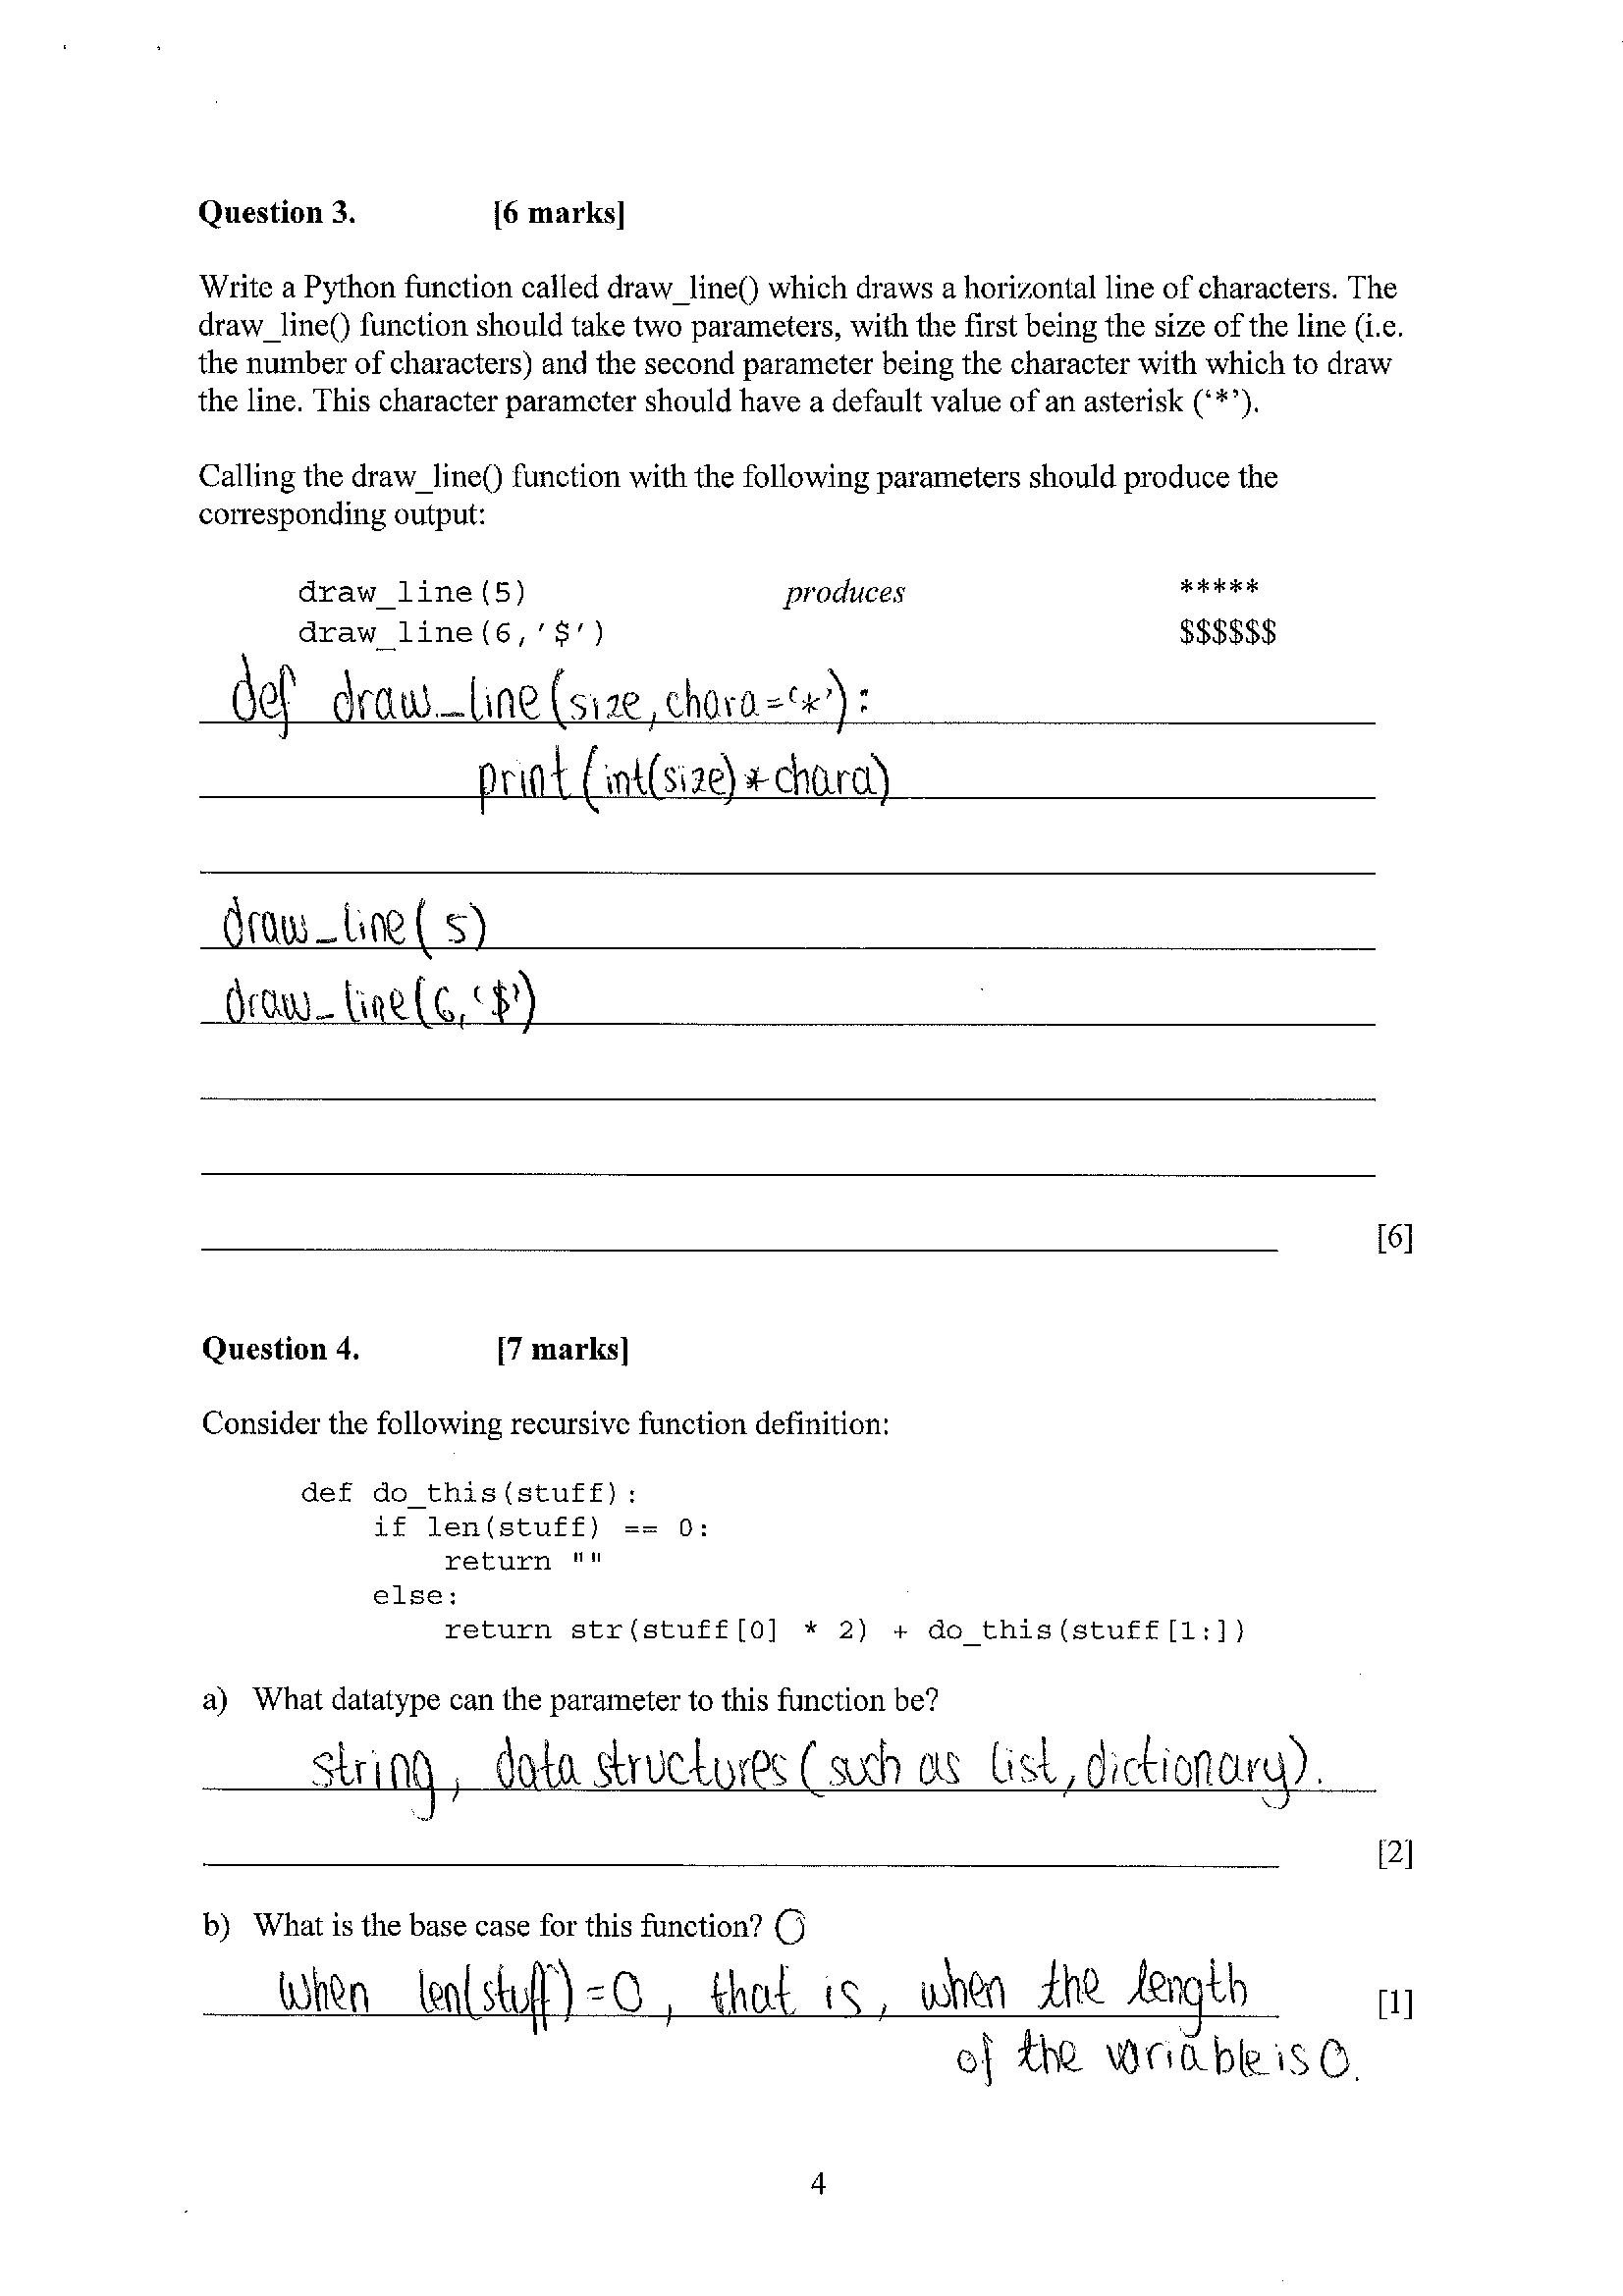 Question 3. [6 marks]
Write a Python function called draw_line() which draws a horizontal line of characters. The
draw_line() function should take two parameters, with the first being the size of the line (i.e.
the number of characters) and the second parameter being the character with which to draw
the line. This character parameter should have a default value of an asterisk (‘*’).
Calling the draw_line() function with the following parameters should produce the
corresponding output:
draw_line(5) produces *****
draw_line(6,'$') $$$$$$
def draw_line(size, chara=‘*’):
print(int(size)*chara)
draw_line(5)
draw_line(6,‘$’)
[6]
Question 4. [7 marks]
Consider the following recursive function definition:
def do_this(stuff):
if len(stuff) == 0:
return ""
else:
return str(stuff[0] * 2) + do_this(stuff[1:])
a) What datatype can the parameter to this function be?
string, data structures (such as list, dictionary).
[2]
b) What is the base case for this function? O
when len(stuff)=0, that is, when the length [1]
of the variable is 0.
4